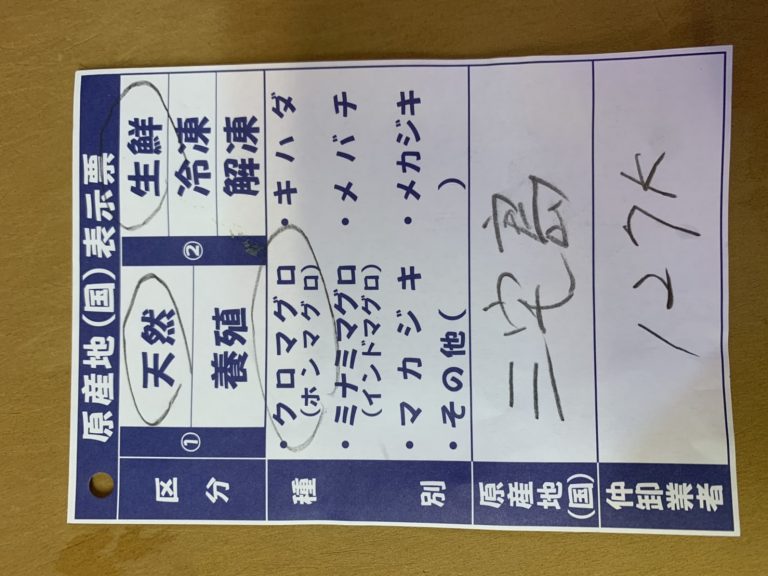 原産地(国)表示票
区分
①
天然
養殖
②
生鮮
冷凍
解凍
種別
・クロマグロ
(ホンマグロ)
・キハダ
・ミナミマグロ
(インドマグロ)
・メバチ
・マカジキ
・メカジキ
・その他( )
原産地(国)
三宅島
仲卸業者
127K